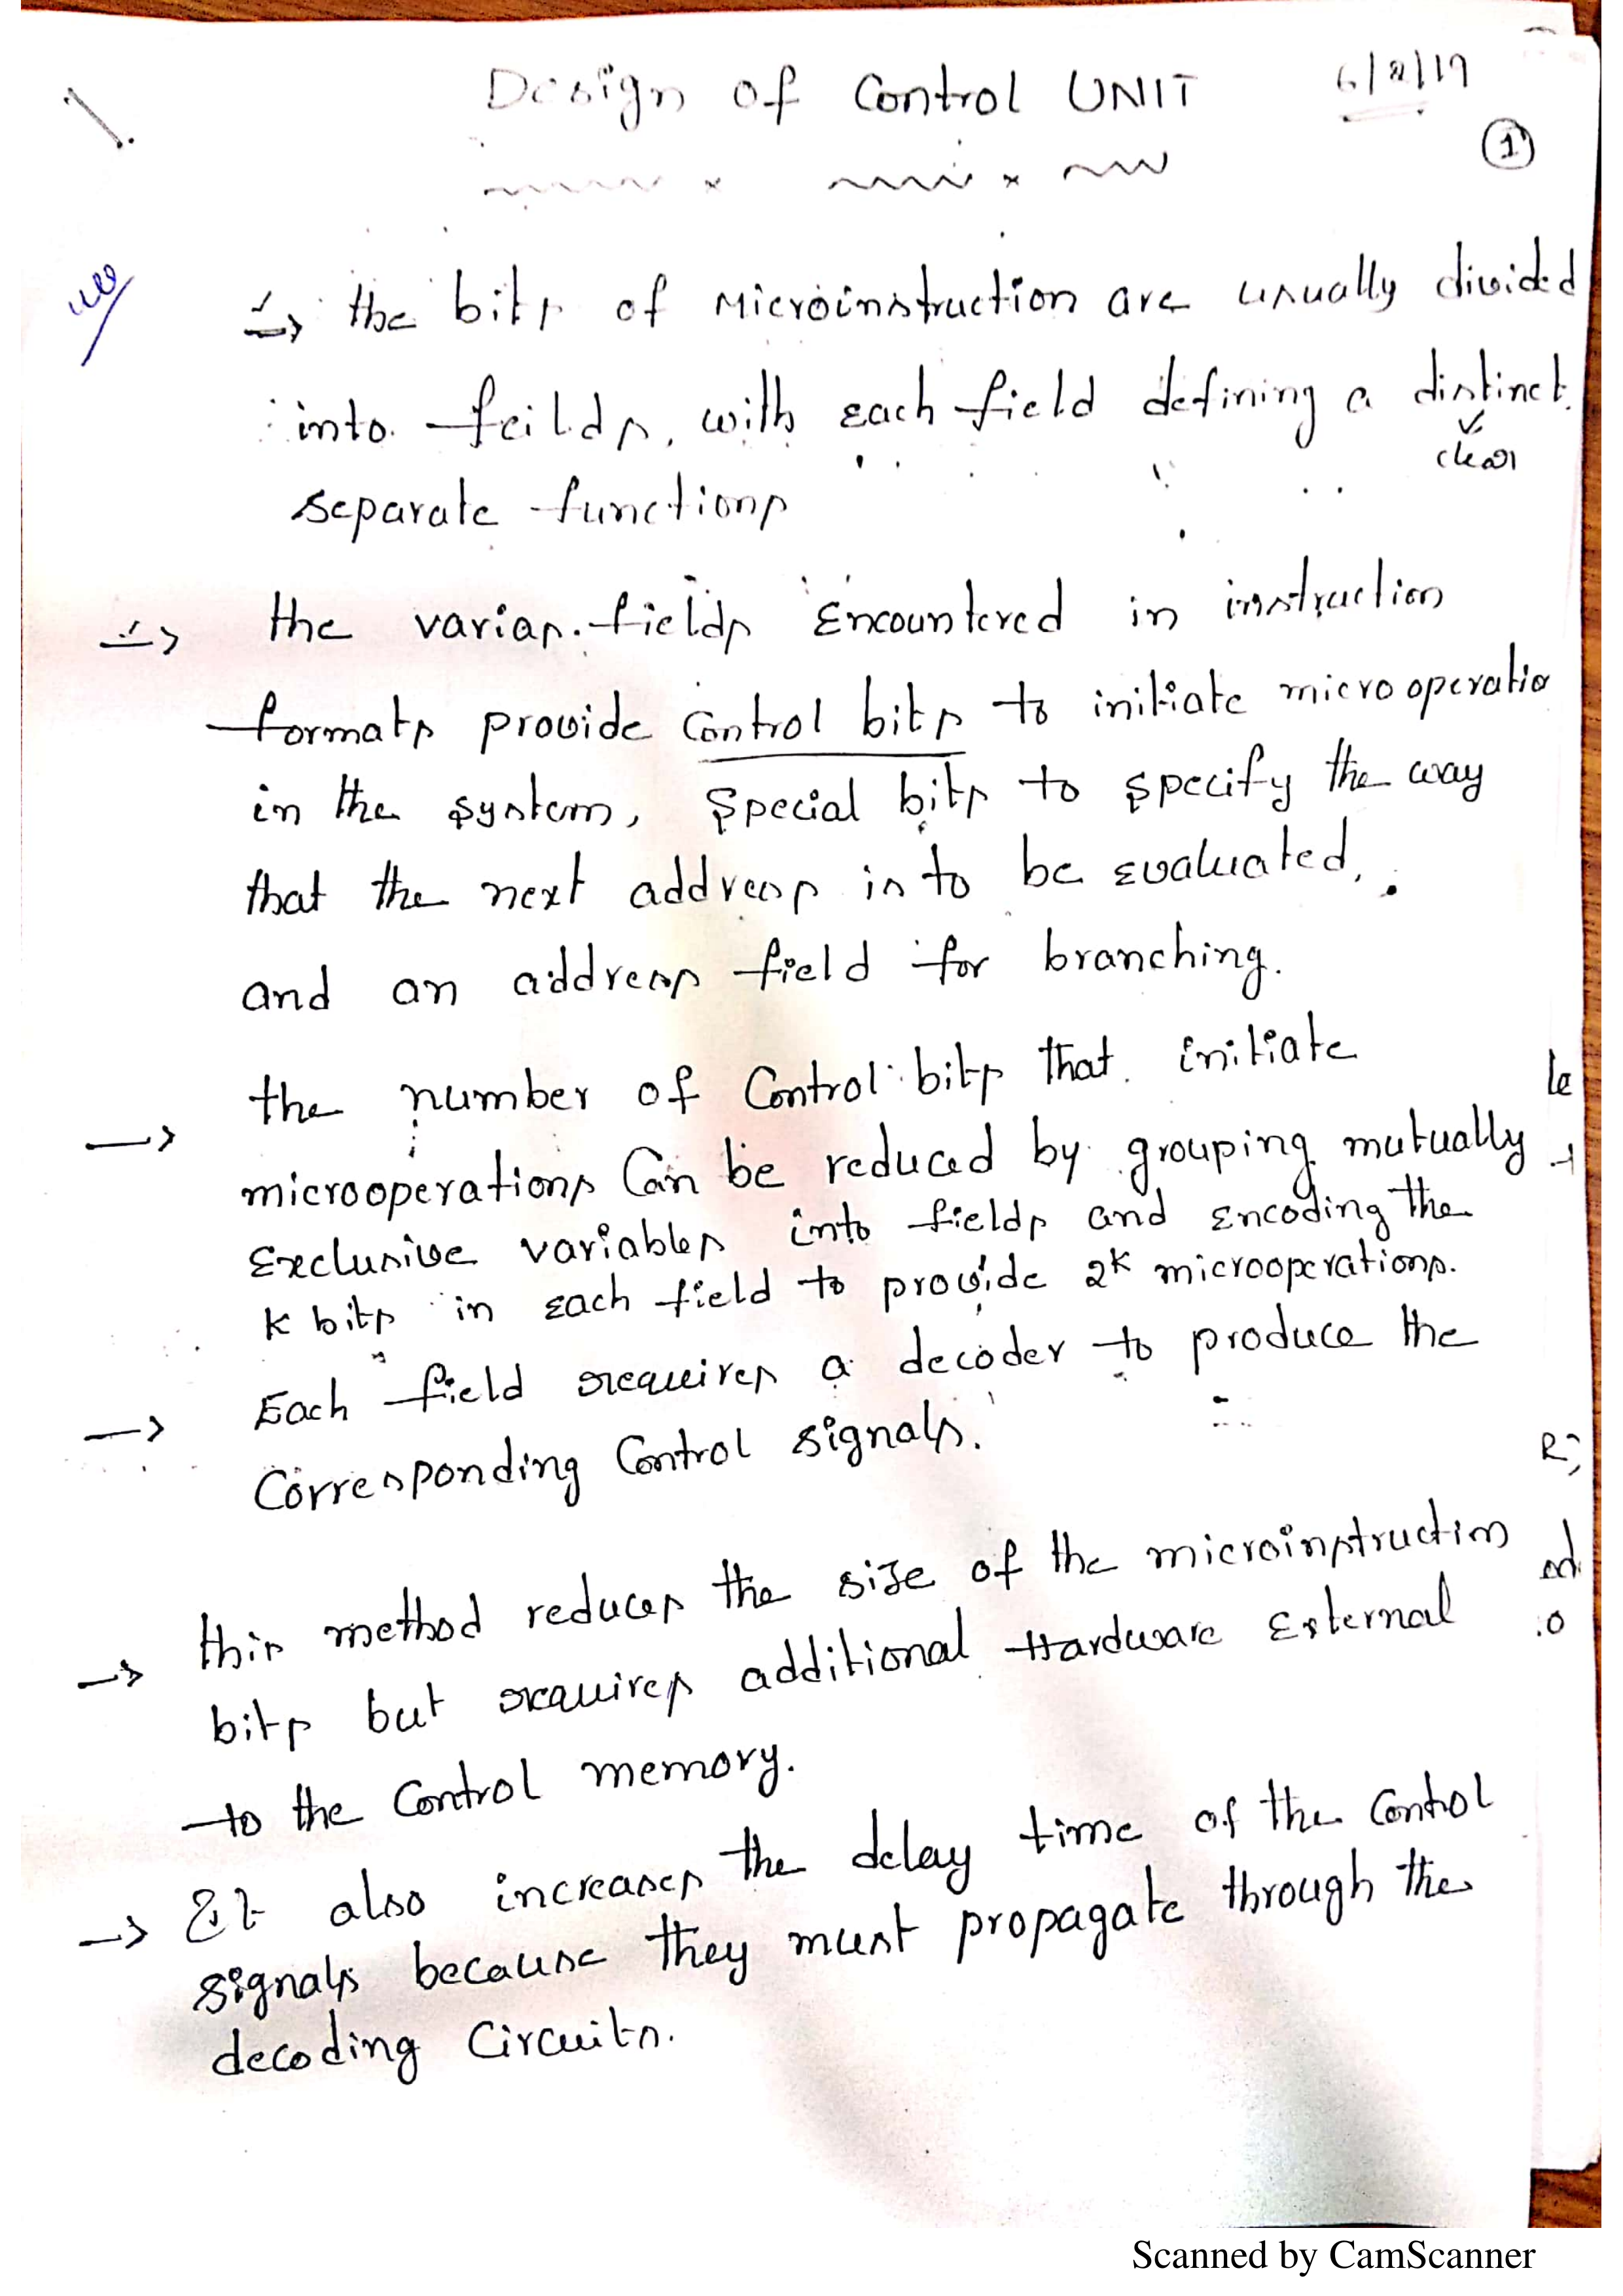 Design of Control UNIT
1
the bits of Microinstruction are usually divided
into feilds, with each field defining a distinct
clear
separate functions
the varias fields Encountered in instruction
formats provide Control bits to initiate microoperatio
in the system, special bits to specify the way
that the next address is to be Evaluated,
and an address field for branching.
the number of Control bits that initiate
microoperations Can be reduced by grouping mutually
Exclusive variables into fields and Encoding the
K bits in each field to provide 2^K microoperations.
Each field requires a decoder to produce the
Corresponding Control signals.
this method reduces the size of the microinstruction
bits but requires additional Hardware External
to the Control memory.
It also increases the delay time of the Control
signals because they must propagate through the
decoding Circuits.
Scanned by CamScanner